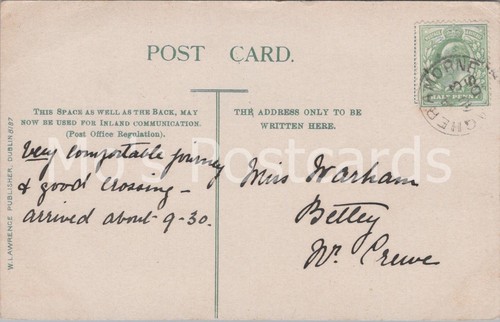 POST CARD.
THIS SPACE AS WELL AS THE BACK, MAY
NOW BE USED FOR INLAND COMMUNICATION.
(Post Office Regulation).
THE ADDRESS ONLY TO BE
WRITTEN HERE.
Very comfortable journey
& good crossing –
arrived about 9-30.
Miss Warham
Betley
Nr. Crewe
W. LAWRENCE PUBLISHER, DUBLIN
HALF PENNY
Postcards